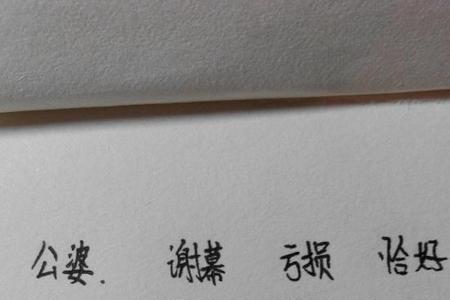 公婆. 谢幕 亏损 恰好